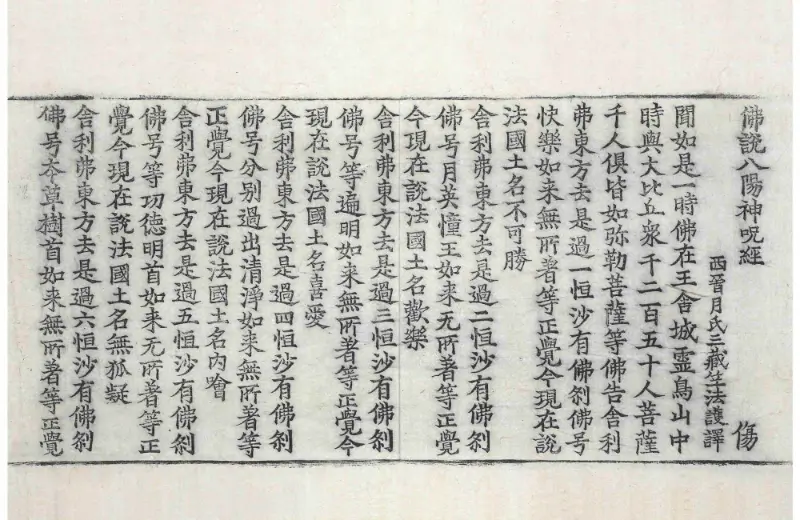 佛說八陽神呪經 傷
西晉月氏三藏竺法護譯
聞如是一時佛在王舍城靈鳥山中
時與大比丘衆千二百五十人菩薩
千人俱皆如弥勒菩薩等佛告舍利
弗東方去是過一恒沙有佛刹佛号
快樂如来無所著等正覺今現在說
法國土名不可勝
舍利弗東方去是過二恒沙有佛刹
佛号月英憧王如来无所著等正覺
今現在說法國土名歡樂
舍利弗東方去是過三恒沙有佛刹
佛号等遍明如来無所著等正覺今
現在說法國土名喜愛
舍利弗東方去是過四恒沙有佛刹
佛号分别過出清淨如来無所著等
正覺今現在說法國土名內噲
舍利弗東方去是過五恒沙有佛刹
佛号等功德明首如来无所著等正
覺今現在說法國土名無狐疑
舍利弗東方去是過六恒沙有佛刹
佛号夲草樹首如来無所著等正覺